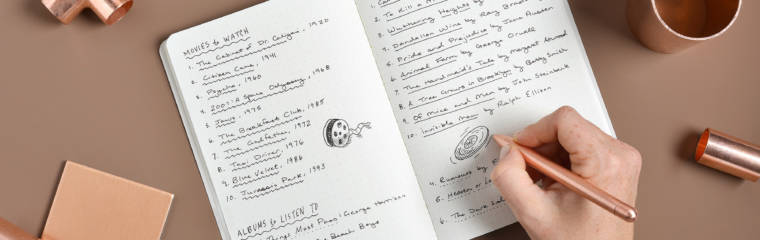 MOVIES to WATCH
1. The Cabinet of Dr. Caligari, 1920
2. Citizen Cane, 1941
3. Psycho, 1960
4. 2001: A Space Odyssey, 1968
5. Jaws, 1975
6. The Breakfast Club, 1985
7. The Godfather, 1972
8. Taxi Driver, 1976
9. Blue Velvet, 1986
10. Jurassic Park, 1993
ALBUMS to LISTEN TO
Things Must Pass, George Harrison
Beach Boys
2. To Kill a
3. Wuthering Heights by
4. Dandelion Wine by Ray
5. Pride and Prejudice by Jane Austen
6. Animal Farm by George Orwell
7. The Handmaid's Tale by Margaret Atwood
8. A Tree Grows in Brooklyn by Betty Smith
9. Of Mice and Men by John Steinbeck
10. Invisible Man by Ralph Ellison
4. Rumours by
5.
6. The Dark